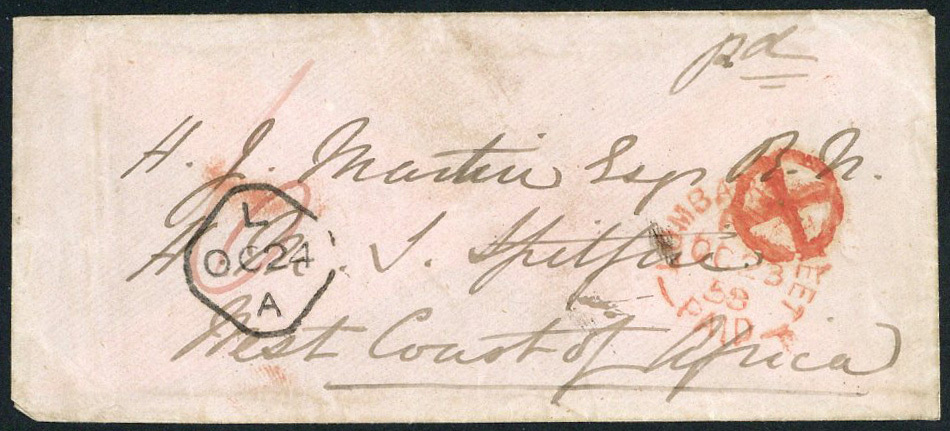 pd
H. J. Martin Esqr R. N.
H. M. S. Spitfire
West Coast of Africa
L
OC 24
A
LOMBARD STREET
OC 23
58
PAID